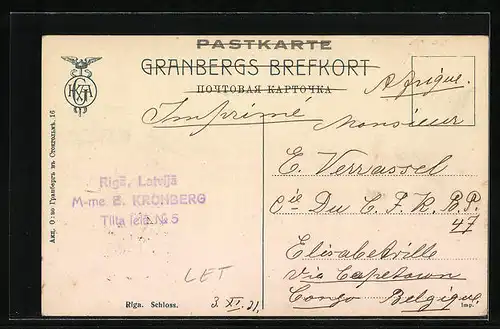 PASTKARTE
GRANBERGS BREFKORT
ПОЧТОВАЯ КАРТОЧКА
Afrique.
Imprimé
Monsieur
E. Verrassel
Cie Du C. F. K. B.P. 47
Elisabetville
via Capetown
Congo Belgique
Imp.
Rīgā, Latvijā
M-me E. KROHBERG
Tilta ielā № 5
LET
Riga. Schloss.
3. XI. 21.
Акц. О-во Гранбергъ въ Стокгольмъ. 16